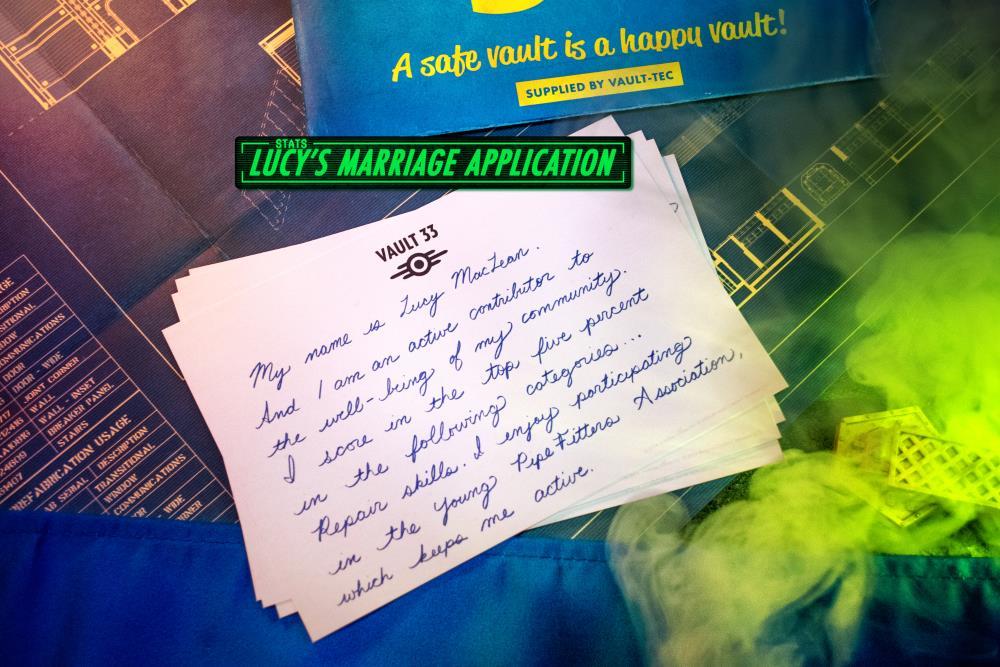 A safe vault is a happy vault!
SUPPLIED BY VAULT-TEC
STATS
LUCY'S MARRIAGE APPLICATION
VAULT 33
My name is Lucy MacLean.
And I am an active contributor to
the well-being of my community.
I score in the top five percent
in the following categories...
Repair skills. I enjoy participating
in the young PipeFitters Association,
which keeps me active.
DOOR - WIDE
JOINT CORNER
WALL
WALL - INSET
BREAKER PANEL
STAIRS
PREFABRICATION USAGE
SERIAL
DESCRIPTION
TRANSITIONAL
WINDOW
COMMUNICATIONS
DOOR
WIDE